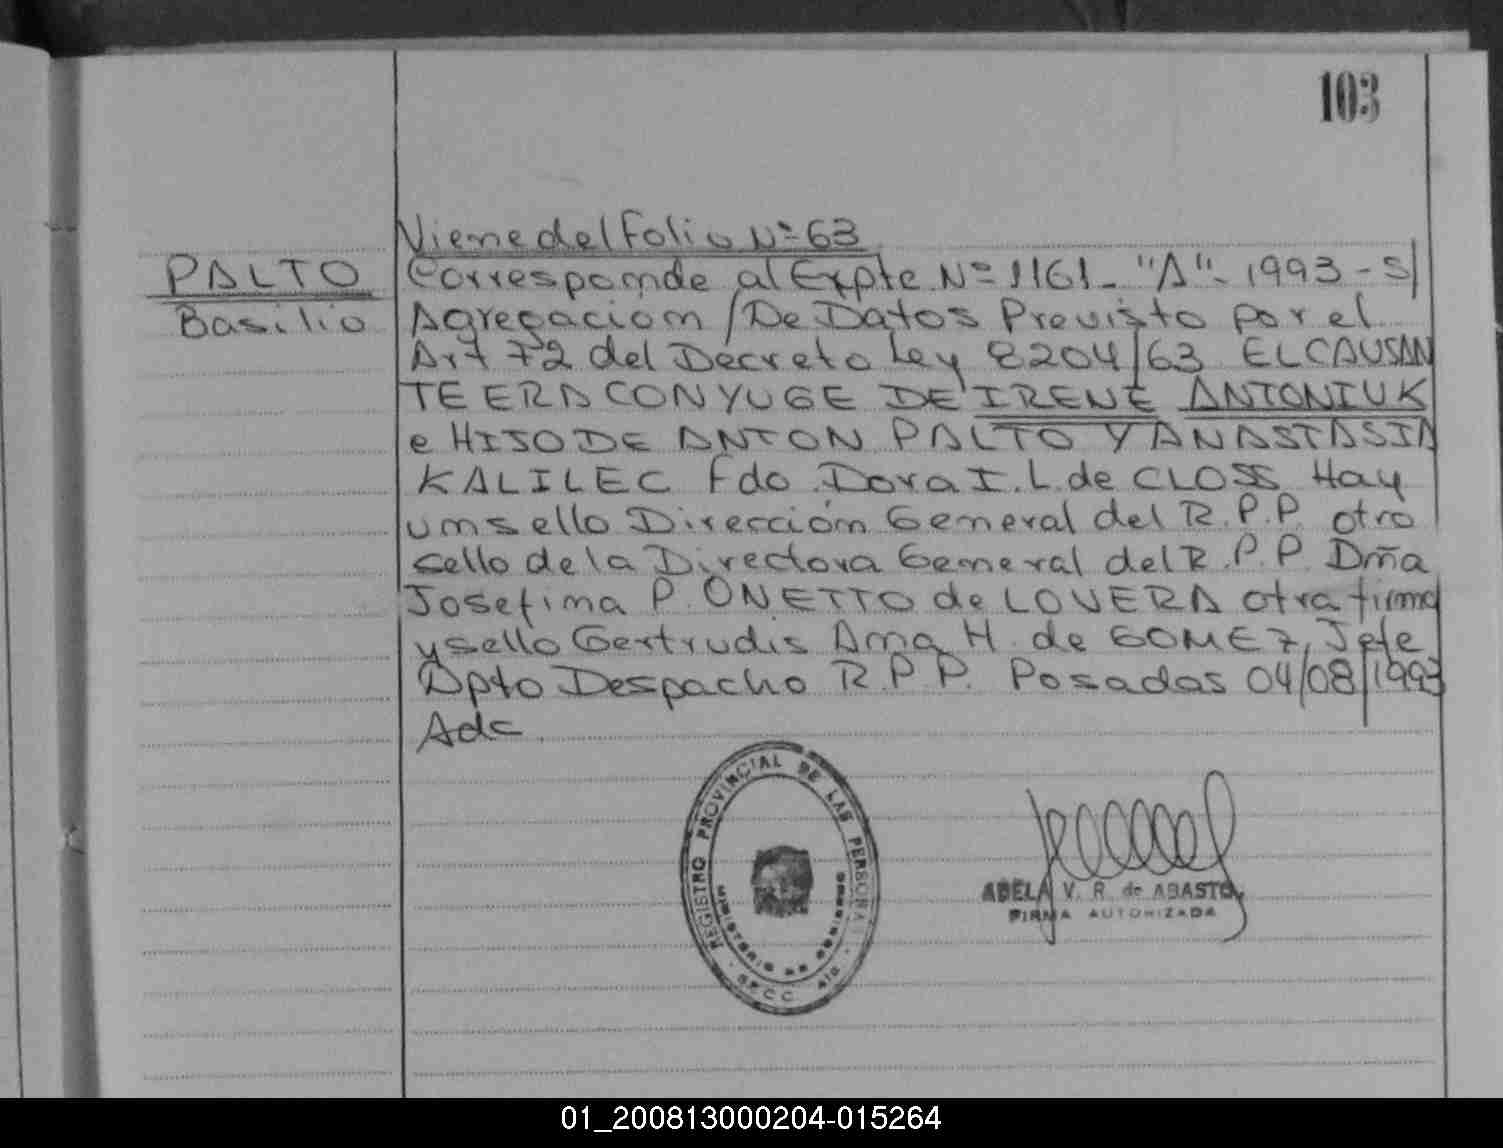 103
Viene del Folio Nº 63
PALTO
Basilio
Corresponde al Expte Nº 1161 - "A" - 1993 - S/
Agregacion / De Datos Previsto por el
Art 72 del Decreto Ley 8204/63 EL CAUSAN
TE ERA CONYUGE DE IRENE ANTONIUK
e HIJO DE ANTON PALTO Y ANASTASIA
KALILEC Fdo. Dora I. L. de CLOSS Hay
un sello Dirección General del R.P.P. otro
sello de la Directora General del R.P.P. Dña
Josefina P. ONETTO de LOVERA otra firma
y sello Gertrudis Ana H. de GOMEZ, Jefe
Dpto Despacho R.P.P. Posadas 04/08/1993
Adc
REGISTRO PROVINCIAL DE LAS PERSONAS
MINISTERIO DE GOBIERNO
ABELA V. R. de ABASTO
FIRMA AUTORIZADA
01_200813000204-015264